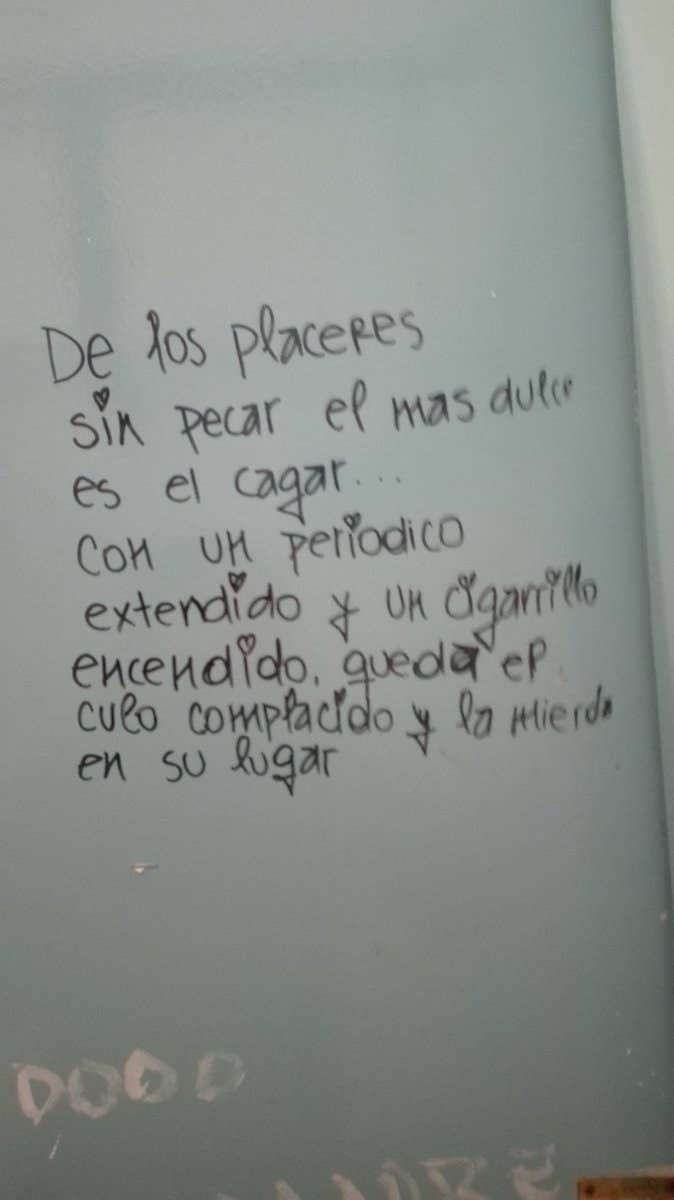 De los placeres
sin pecar el mas dulce
es el cagar...
con un periodico
extendido y un cigarrillo
encendido. queda el
culo complacido y la mierda
en su lugar